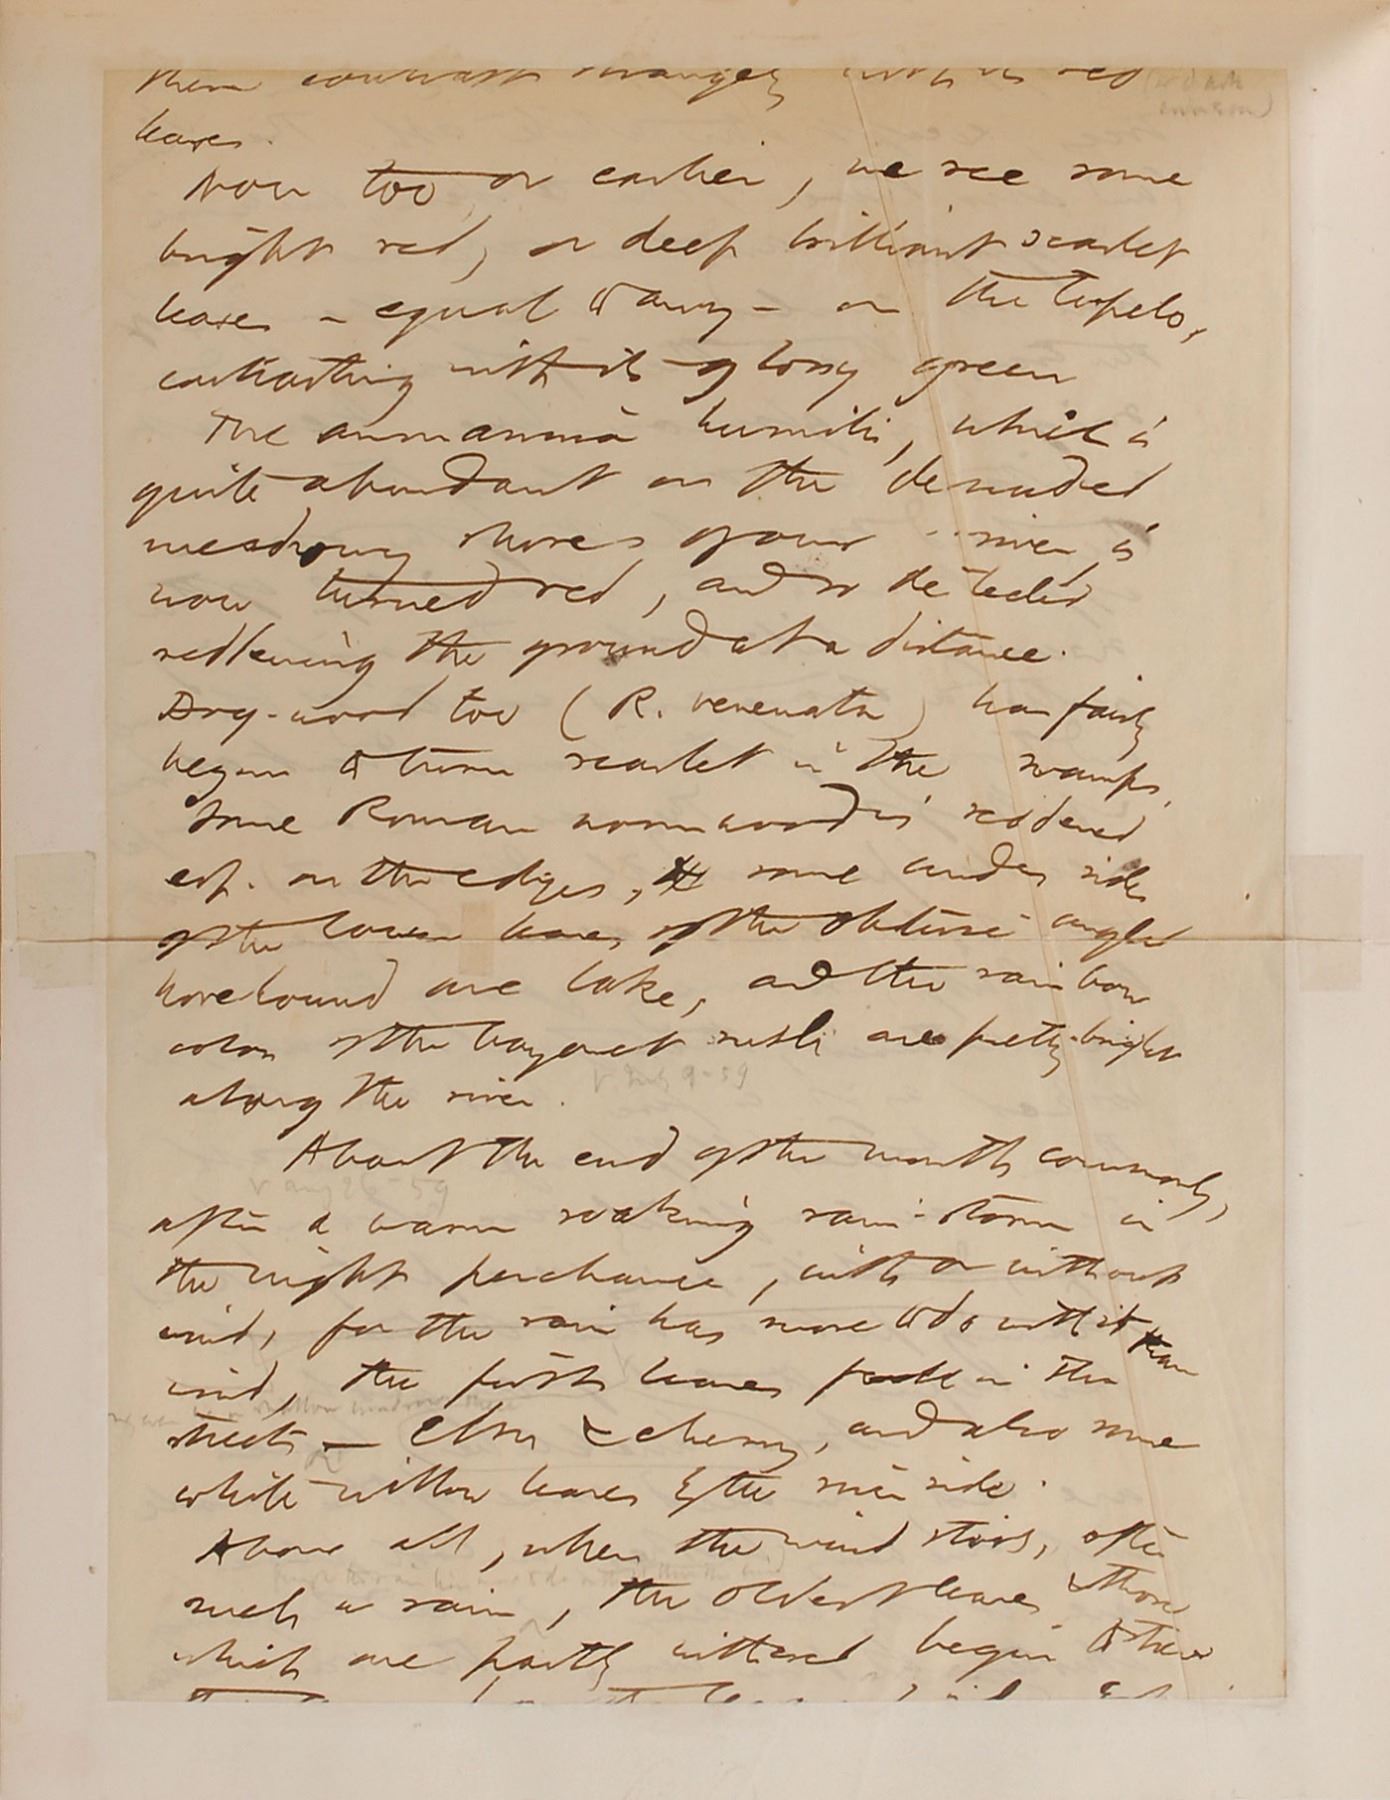 them contrast strangely with its red
leaves.
Now too, or earlier, we see some
bright red, or deep brilliant scarlet
leaves – equal to any – on the tupelo,
contrasting with its glossy green
The ammannia humilis, which is
quite abundant on the denuded
meadowy shores of our river, is
now turned red, and so detected
reddening the ground at a distance.
Dog-wood too (R. venenata) has fairly
begun to turn scarlet in the swamps,
Some Roman wormwood is reddened
esp. on the edges, some under sides
of the lower leaves of the obtuse angled
horehound are lake, and the rainbow
colors of the bayonet rush are pretty bright
v July 9–59
along the river.
About the end of the month commonly,
v Aug 26–59
after a warm soaking rain-storm in
the night perchance, with or without
wind, for the rain has more to do with it than
wind, the first leaves fall in the
streets – Elm & cherry, and also some
white willow leaves by the river side.
Above all, when the wind stirs, after
such a rain, the oldest leaves & those
which are partly withered begin to strew